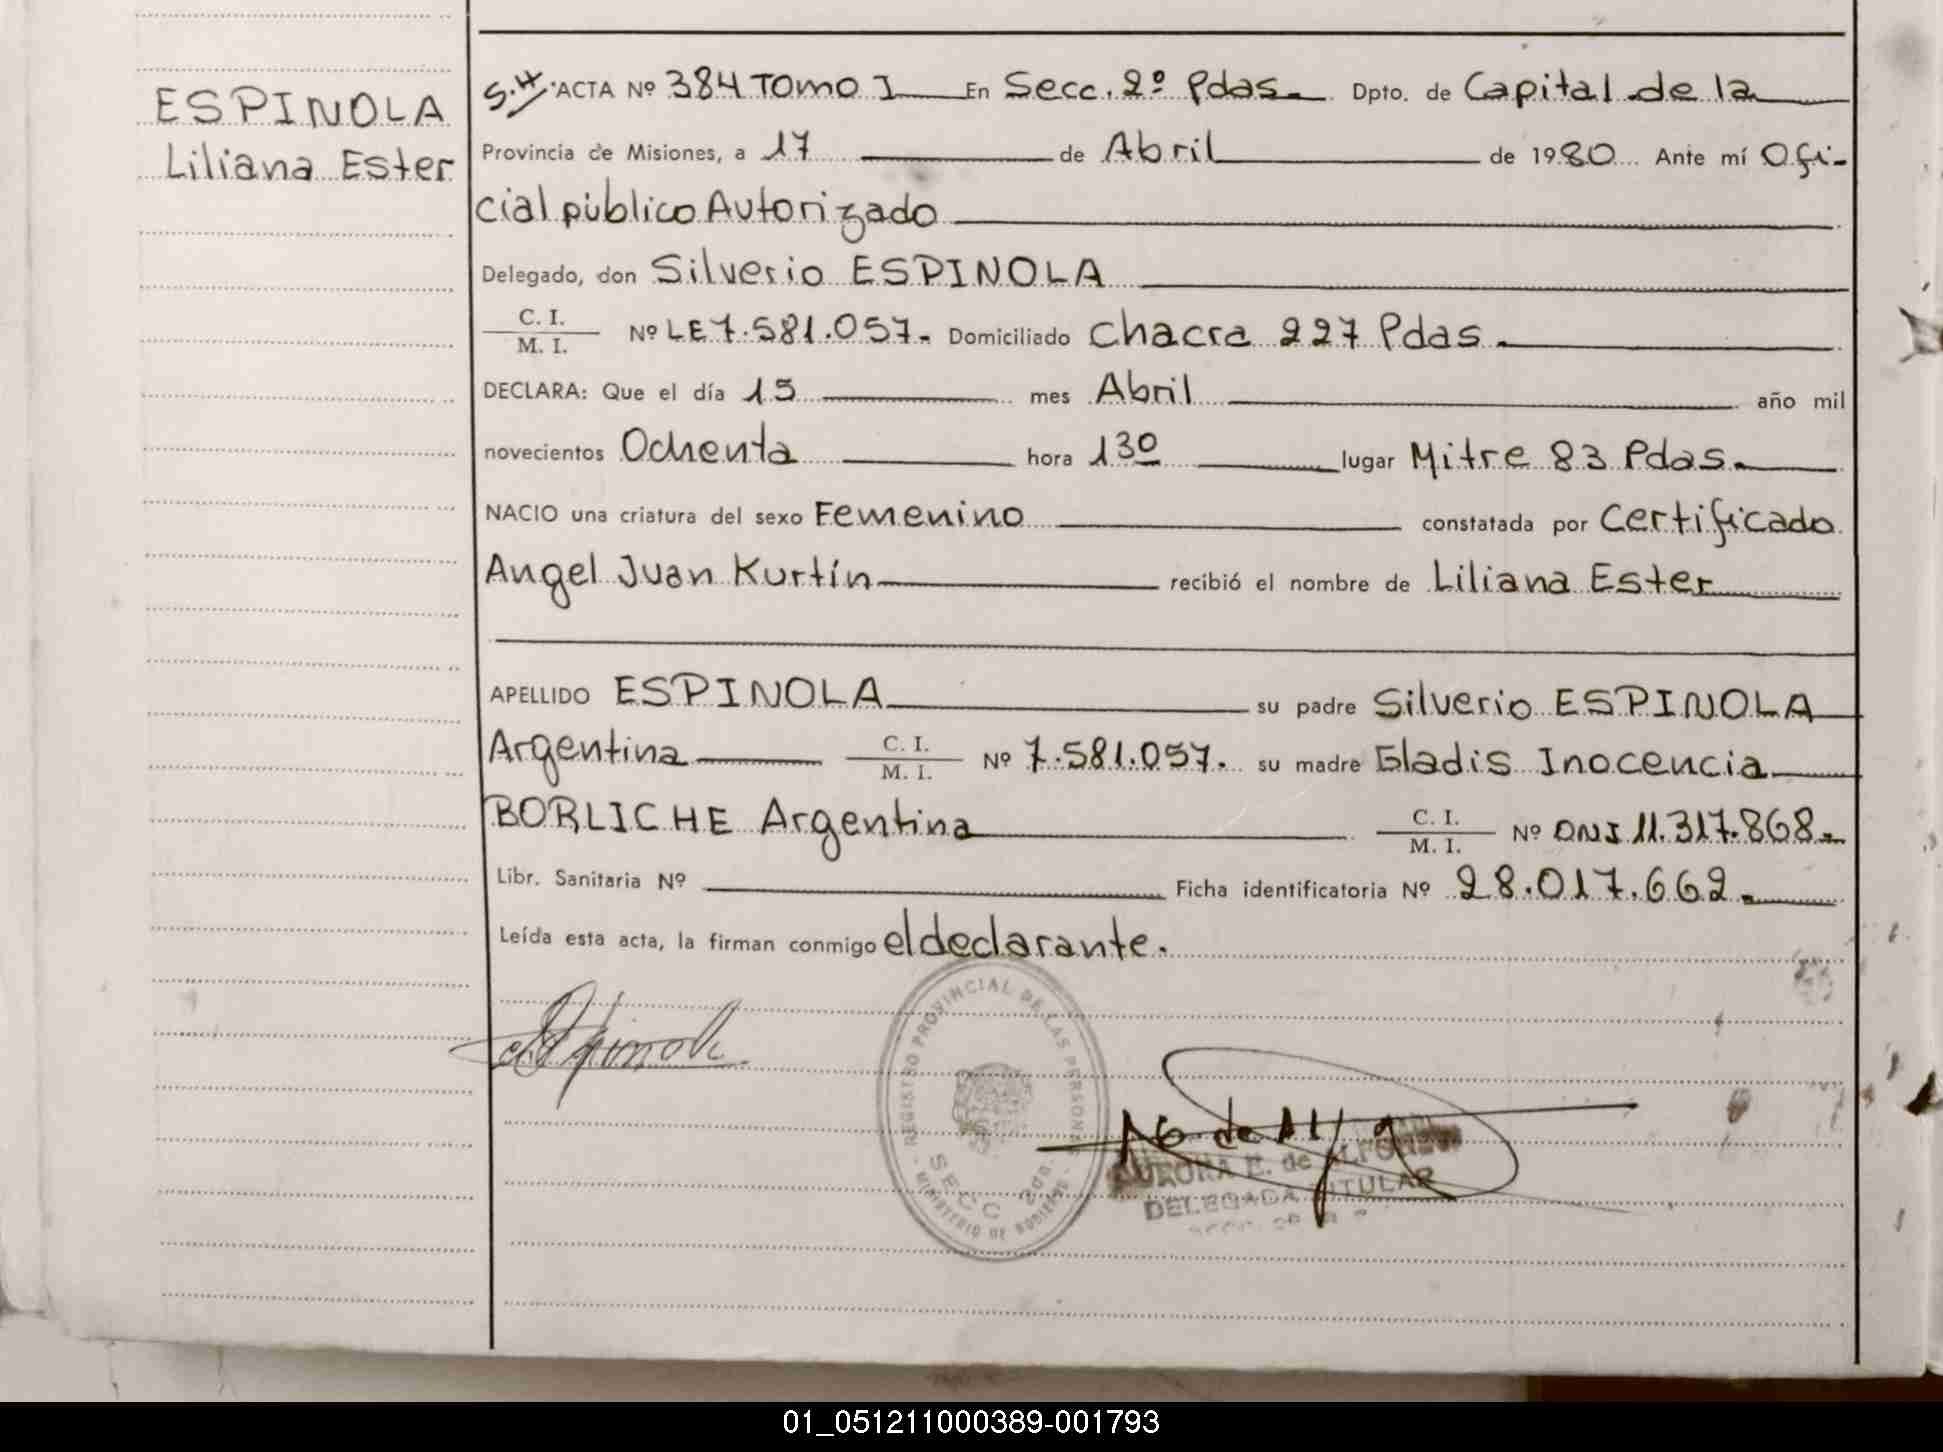 ESPINOLA
Liliana Ester
S.H. ACTA Nº 384 Tomo I En Secc. 2º Pdas. Dpto. de Capital de la
Provincia de Misiones, a 17 de Abril de 1980 Ante mí Ofi-
cial público Autorizado
Delegado, don Silverio ESPINOLA
C. I.
M. I. Nº LE 7.581.057. Domiciliado Chacra 227 Pdas.
DECLARA: Que el día 15 mes Abril año mil
novecientos Ochenta hora 1 30 lugar Mitre 83 Pdas.
NACIO una criatura del sexo Femenino constatada por Certificado
Angel Juan Kurtín recibió el nombre de Liliana Ester
APELLIDO ESPINOLA su padre Silverio ESPINOLA
Argentina C. I. M. I. Nº 7.581.057. su madre Gladis Inocencia
BORLICHE Argentina C. I. M. I. Nº DNI 11.317.868.
Libr. Sanitaria Nº Ficha identificatoria Nº 28.017.662.
Leída esta acta, la firman conmigo el declarante.
REGISTRO PROVINCIAL DE LAS PERSONAS
SECC 2da.
MINISTERIO DE GOBIERNO
AURORA E. de
DELEGADA TITULAR
01_051211000389-001793